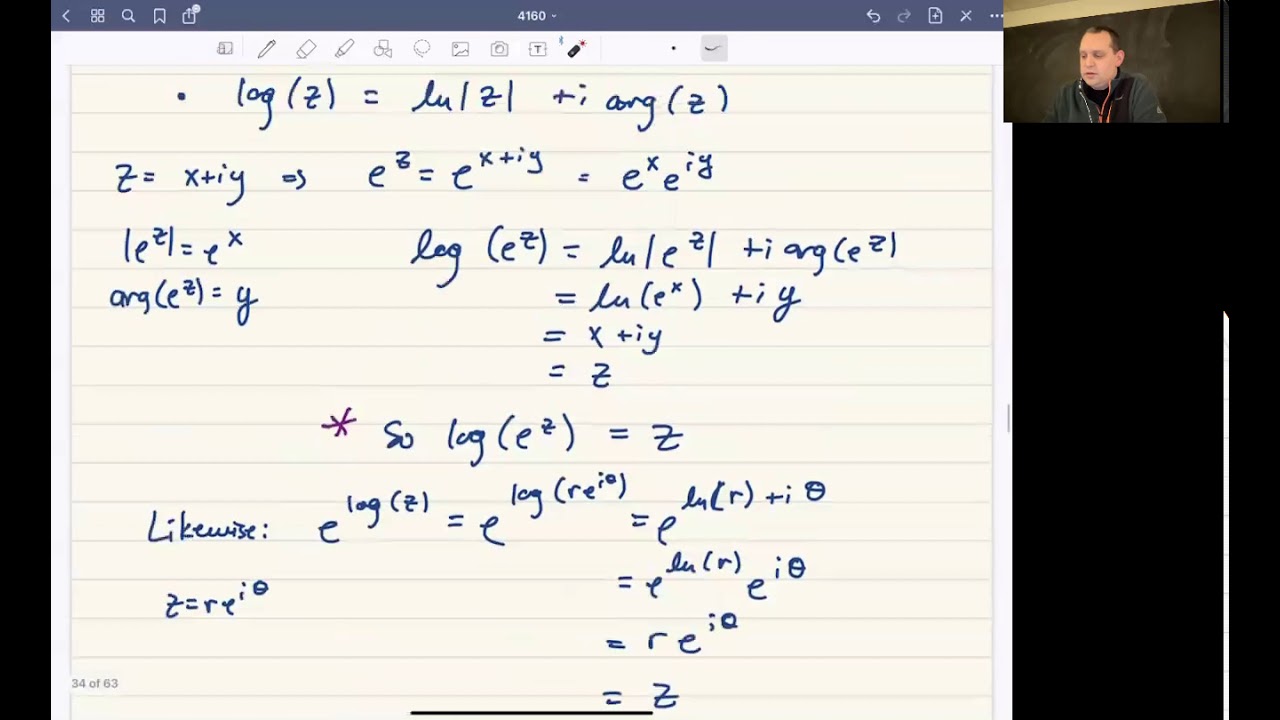 4160
T
• log(z) = ln|z| +i arg(z)
z = x+iy ⇒ e^z = e^{x+iy} = e^x e^{iy}
|e^z| = e^x log(e^z) = ln|e^z| +i arg(e^z)
arg(e^z) = y = ln(e^x) +iy
= x+iy
= z
* So log(e^z) = z
Likewise: e^{log(z)} = e^{log(re^{iθ})} = e^{ln(r)+iθ}
= e^{ln(r)} e^{iθ}
z=re^{iθ}
= re^{iθ}
34 of 63
= z